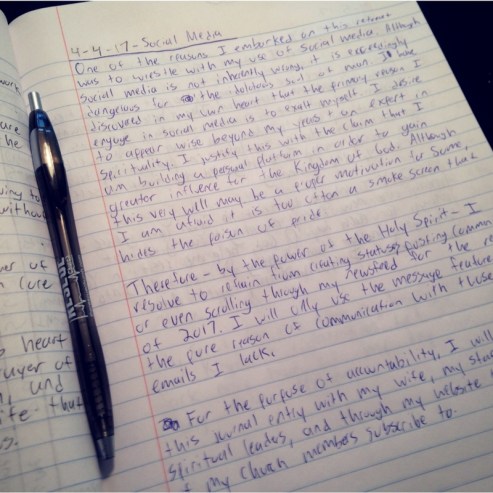 4-4-17 - Social Media
One of the reasons I embarked on this
was to wrestle with my use of social media. Although
social media is not inherently wrong, it is exceedingly
dangerous for the idolatrous soul of man. I have
discovered in my own heart that the primary reason I
engage in social media is to exalt myself. I desire
to appear wise beyond my years & an expert in
spirituality. I justify this with the claim that I
am building a personal platform in order to gain
greater influence for the Kingdom of God. Although
this very well may be a proper motivation for some,
I am afraid it is too often a smoke screen that
hides the poison of pride.
Therefore - by the power of the Holy Spirit - I
resolve to refrain from creating statuses, posting comm
or even scrolling through my newsfeed for the re
of 2017. I will only use the message feature
the pure reason of communication with those
emails I lack.
For the purpose of accountability, I will
this journal entry with my wife, my sta
spiritual leaders, and through my website
my church members subscribe to.
work
are
he
ing to
without
er of
core
heart
rayer of
and
life that
s.